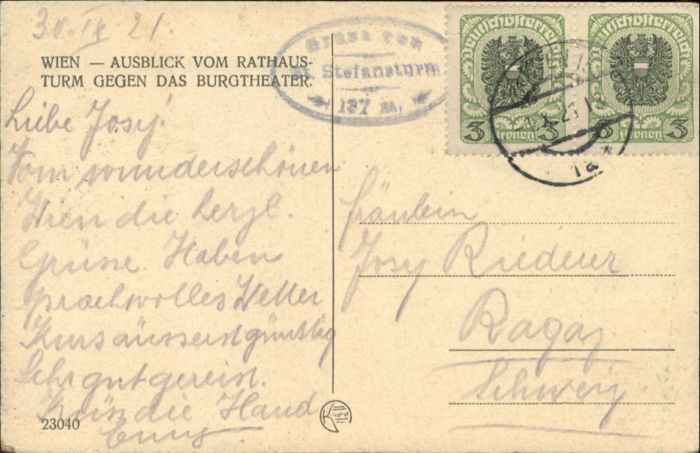 30. IX 21
WIEN — AUSBLICK VOM RATHAUS-
TURM GEGEN DAS BURGTHEATER.
Gruss vom
St. Stefansturm
137 m.
Deutschösterreich
Deutschösterreich
3 Kronen 3
3 Kronen 3
Liebe Josy!
Vom wunderschönen
Wien die herzl.
Grüsse. Haben
prachtvolles Wetter
Kurs äusserst günstig
Sehr gut gereist.
Küss die Hand
Fräulein
Josy Riederer
Ragaz
Schweiz.
23040